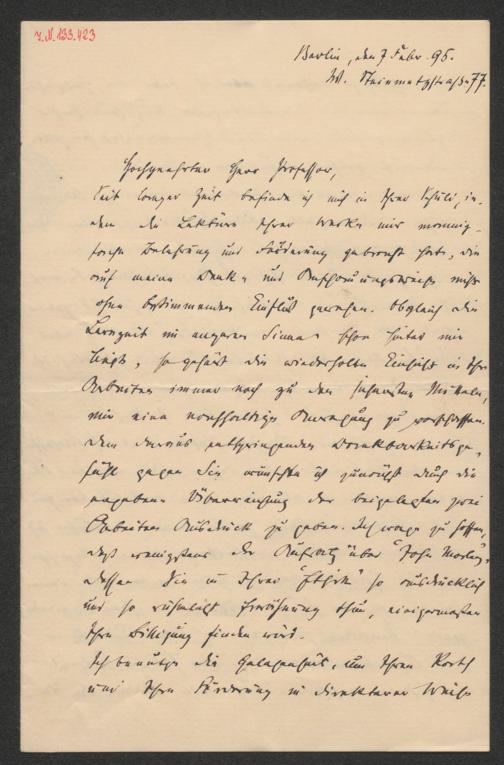 I.N. 133.423
Berlin, den 7 Febr. 95.
W. Steinmetzstraße 77.
Hochgeehrter Herr Professor,
Seit langer Zeit befinde ich mich in Ihrer Schuld, in-
dem die Lektüre Ihrer Werke mir mannig-
fache Belehrung und Förderung gebracht hat, die
auf meine Denk- und Anschauungsweise nicht
ohne bestimmenden Einfluß gewesen. Obgleich die
Lernzeit im engeren Sinne schon hinter mir
liegt, so gehört die wiederholte Einsicht in Ihre
Arbeiten immer noch zu den sichersten Mitteln,
mir eine nachhaltige Anregung zu verschaffen.
Dem daraus entspringenden Dankbarkeitsge-
fühl gegen Sie wünschte ich zunächst durch die
ergebene Überreichung der beigelegten zwei
Arbeiten Ausdruck zu geben. Ich wage zu hoffen,
daß wenigstens der Aufsatz über "John Morley",
dessen Sie in Ihrer "Ethik" so ausdrücklich
und so rühmlichst Erwähnung thun, einigermaßen
Ihre Billigung finden wird.
Ich benutze die Gelegenheit, um Ihren Rath
und Ihre Förderung in direkterer Weise